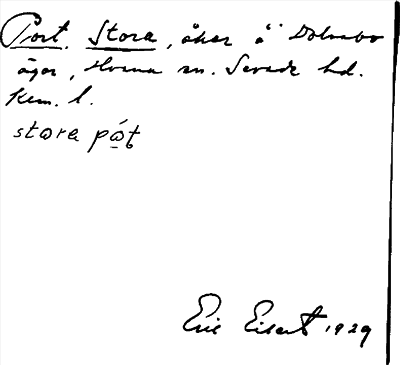 Port. Stora, åker å Dolnebo
ägor, Hvena sn. Sevede hd.
Klm. l.
stora pát
Eric Elsert 1929